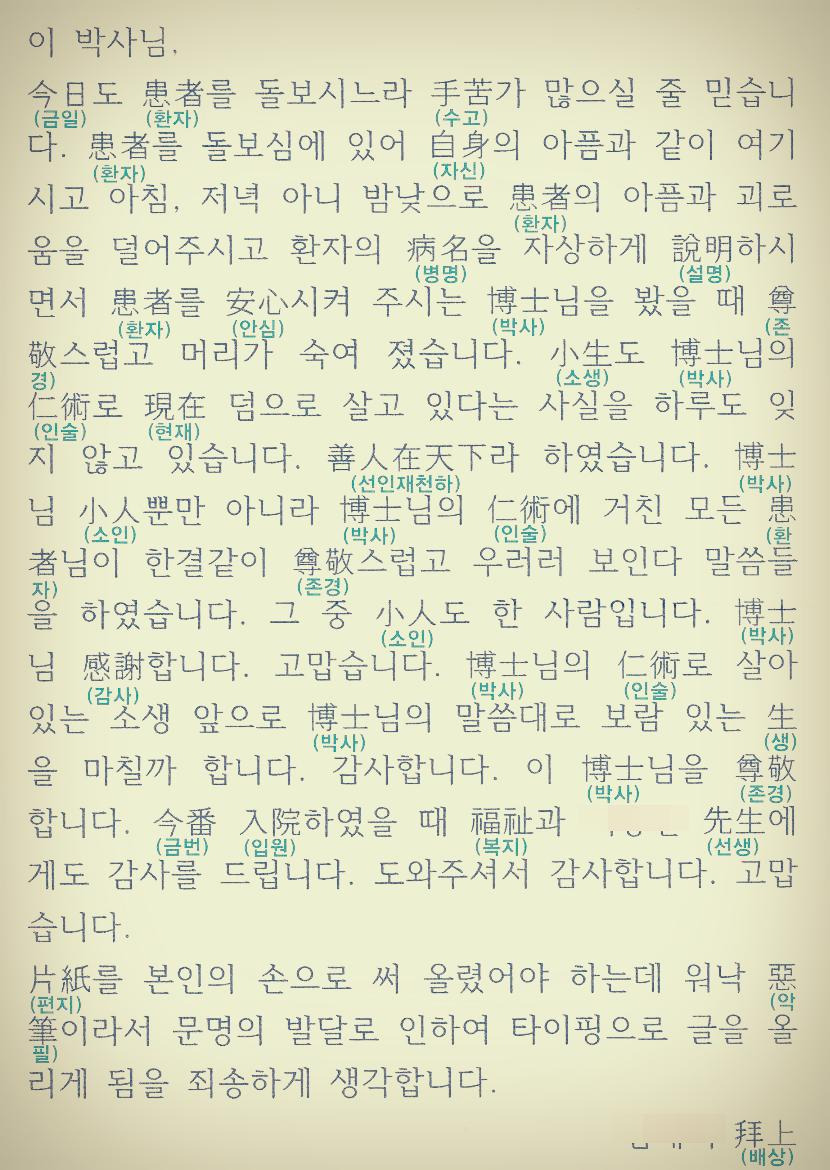 이 박사님,
今日도 患者를 돌보시느라 手苦가 많으실 줄 믿습니
(금일) (환자) (수고)
다. 患者를 돌보심에 있어 自身의 아픔과 같이 여기
(환자) (자신)
시고 아침, 저녁 아니 밤낮으로 患者의 아픔과 괴로
(환자)
움을 덜어주시고 환자의 病名을 자상하게 說明하시
(병명) (설명)
면서 患者를 安心시켜 주시는 博士님을 봤을 때 尊
(환자) (안심) (박사) (존
敬스럽고 머리가 숙여 졌습니다. 小生도 博士님의
경) (소생) (박사)
仁術로 現在 덤으로 살고 있다는 사실을 하루도 잊
(인술) (현재)
지 않고 있습니다. 善人在天下라 하였습니다. 博士
(선인재천하) (박사)
님 小人뿐만 아니라 博士님의 仁術에 거친 모든 患
(소인) (박사) (인술) (환
者님이 한결같이 尊敬스럽고 우러러 보인다 말씀들
자) (존경)
을 하였습니다. 그 중 小人도 한 사람입니다. 博士
(소인) (박사)
님 感謝합니다. 고맙습니다. 博士님의 仁術로 살아
(감사) (박사) (인술)
있는 소생 앞으로 博士님의 말씀대로 보람 있는 生
(박사) (생)
을 마칠까 합니다. 감사합니다. 이 博士님을 尊敬
(박사) (존경)
합니다. 今番 入院하였을 때 福祉과 先生에
(금번) (입원) (복지) (선생)
게도 감사를 드립니다. 도와주셔서 감사합니다. 고맙
습니다.
片紙를 본인의 손으로 써 올렸어야 하는데 워낙 惡
(편지) (악
筆이라서 문명의 발달로 인하여 타이핑으로 글을 올
필)
리게 됨을 죄송하게 생각합니다.
拜上
(배상)